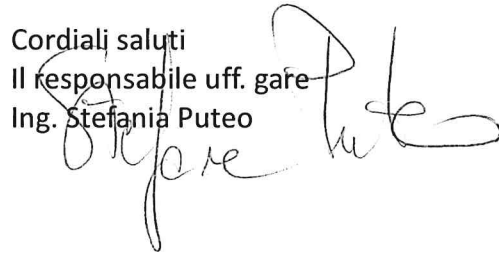 Cordiali saluti
Il responsabile uff. gare
Ing. Stefania Puteo
Puteo